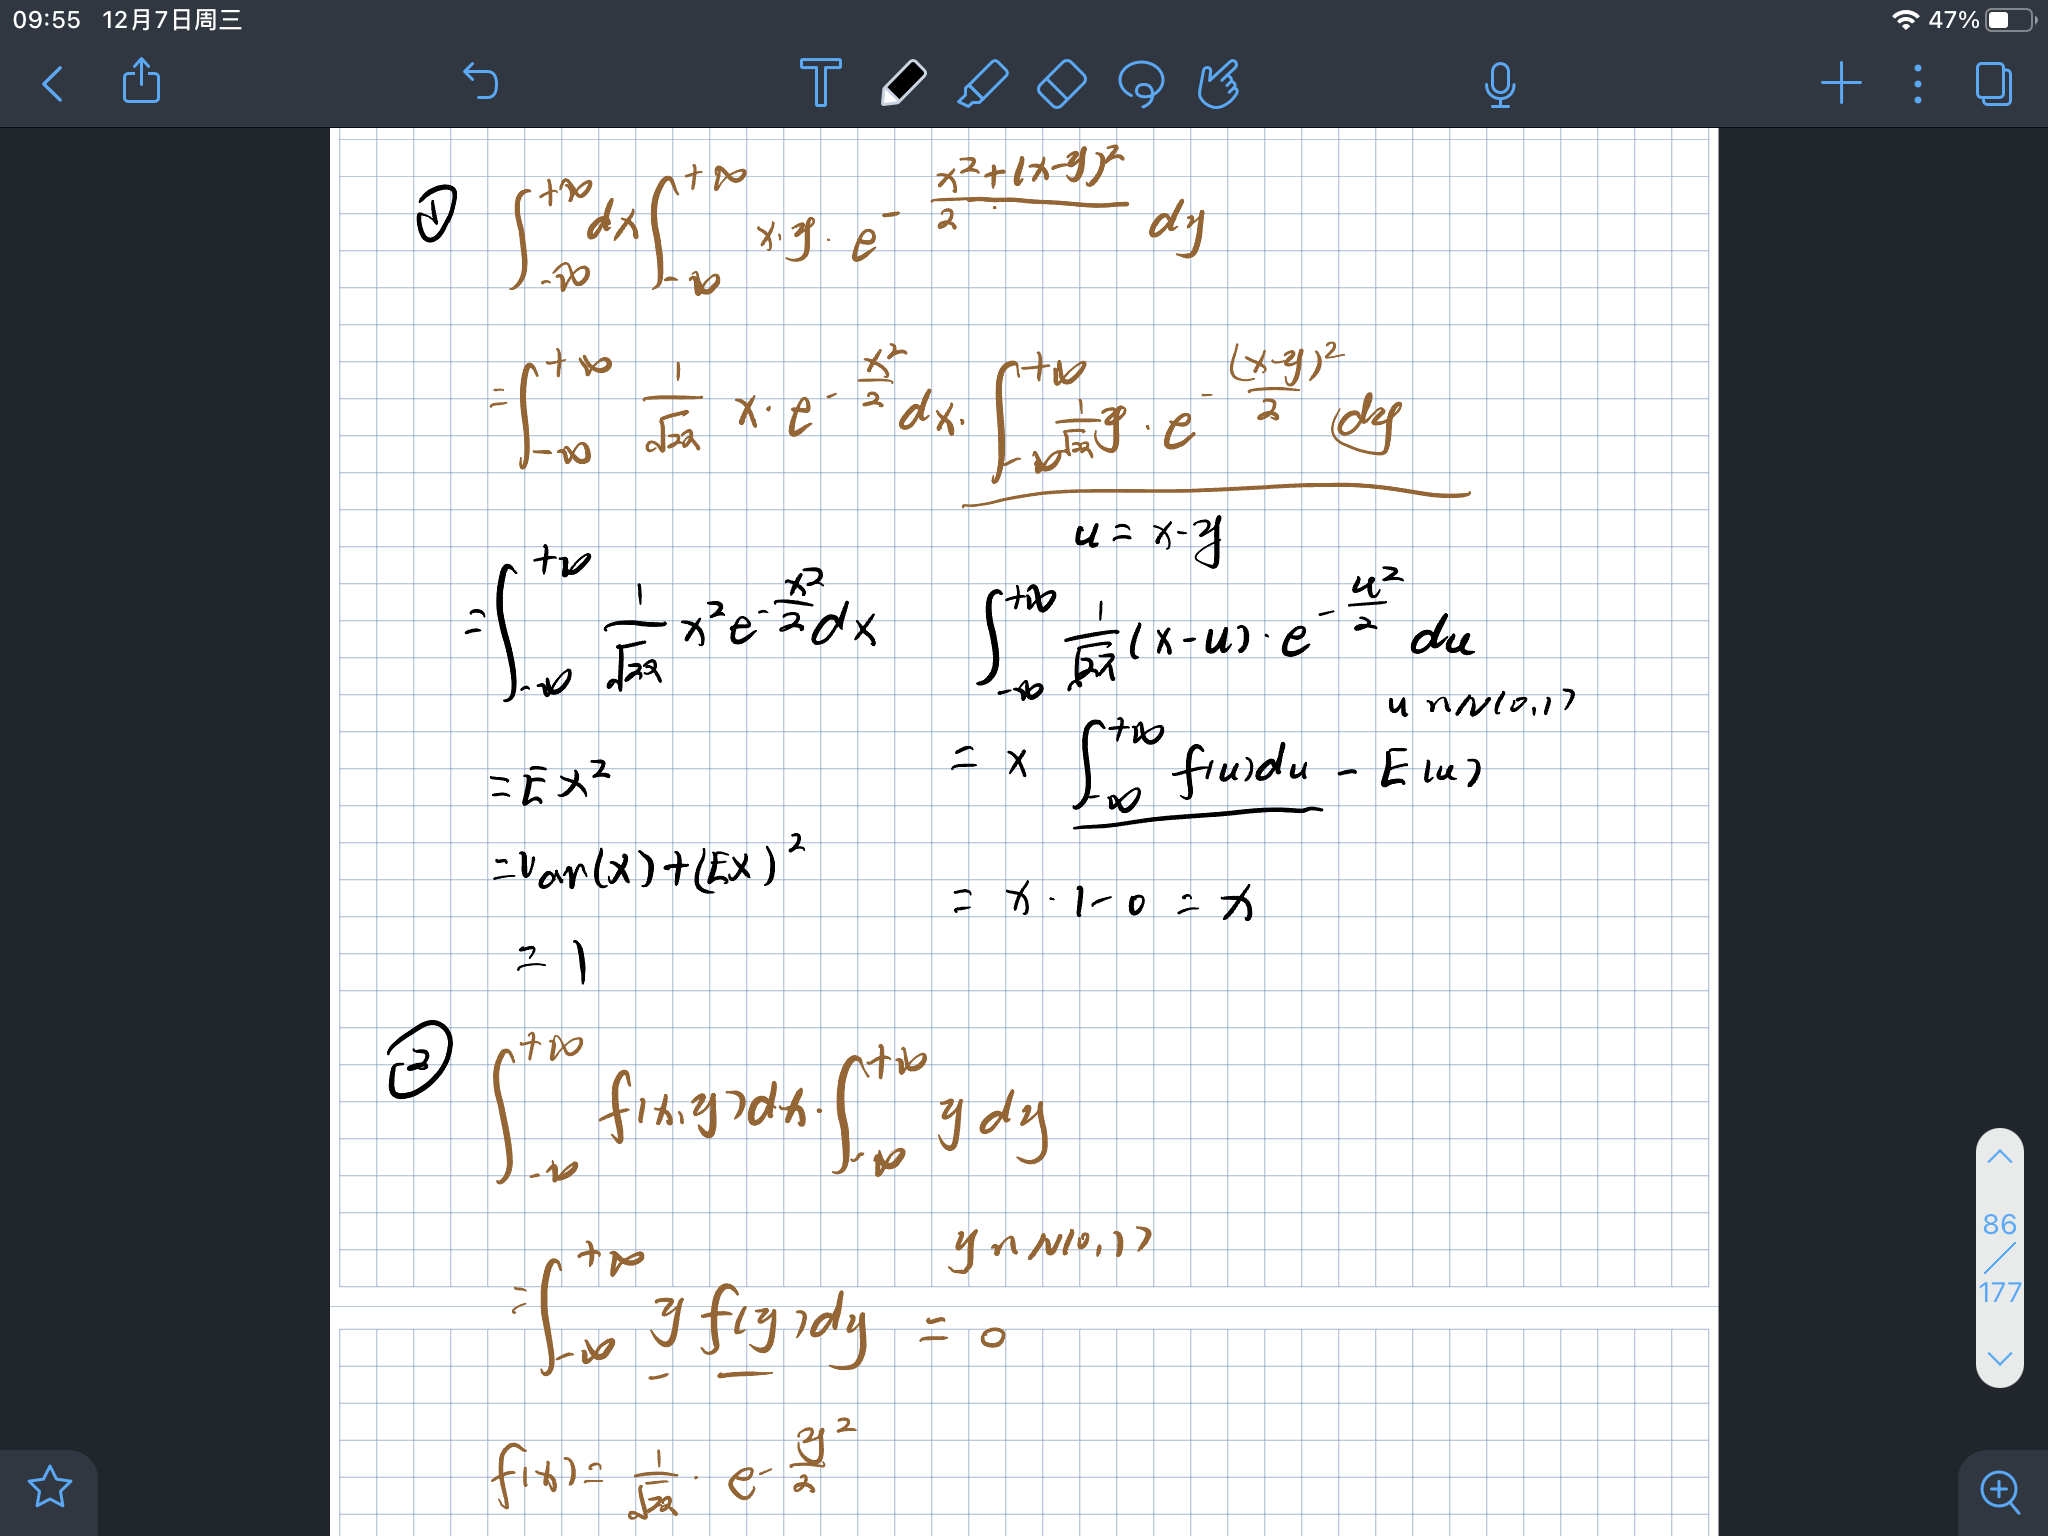 09:55 12月7日周三 47%
① ∫_{-∞}^{+∞} dx ∫_{-∞}^{+∞} x·y· e^{-\frac{x²+(x-y)²}{2}} dy
= ∫_{-∞}^{+∞} \frac{1}{√2π} x· e^{-\frac{x²}{2}} dx · ∫_{-∞}^{+∞} \frac{1}{√2π} y · e^{-\frac{(x-y)²}{2}} dy
u = x-y
= ∫_{-∞}^{+∞} \frac{1}{√2π} x² e^{-\frac{x²}{2}} dx
∫_{-∞}^{+∞} \frac{1}{√2π} (x-u) · e^{-\frac{u²}{2}} du
u ~ N(0,1)
= EX²
= x ∫_{-∞}^{+∞} f(u)du - E(u)
= Var(X)+(EX)²
= x·1-0 = x
= 1
② ∫_{-∞}^{+∞} f(x,y)dx · ∫_{-∞}^{+∞} y dy
y ~ N(0,1)
= ∫_{-∞}^{+∞} y f(y)dy = 0
f(x) = \frac{1}{√2π} · e^{-\frac{y²}{2}}
86
/
177